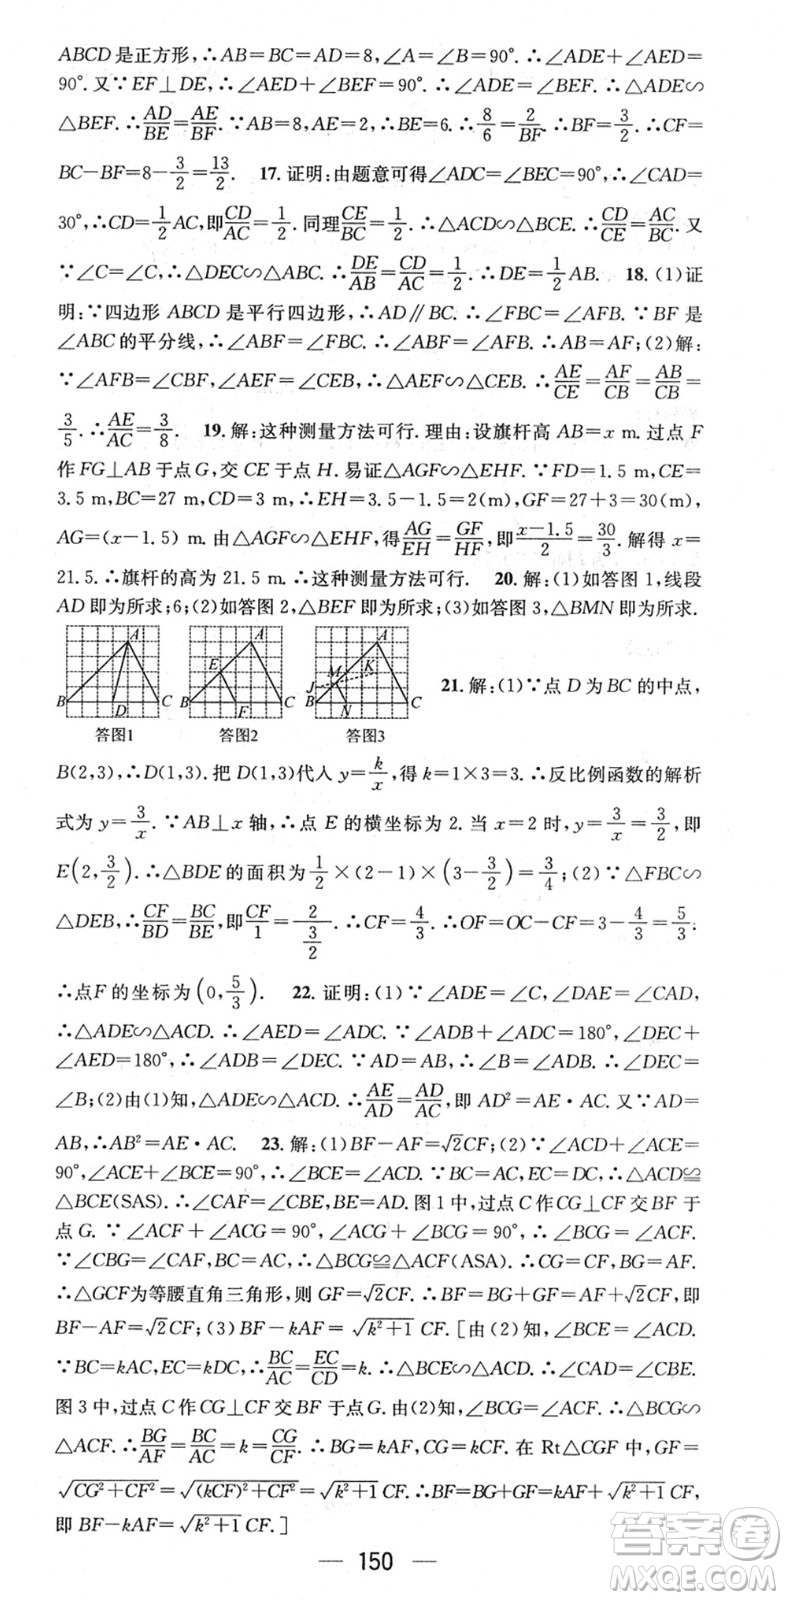 ABCD是正方形,∴AB=BC=AD=8,∠A=∠B=90°.∴∠ADE+∠AED=
90°.又∵EF⊥DE,∴∠AED+∠BEF=90°.∴∠ADE=∠BEF.∴△ADE∽
△BEF.∴AD/BE=AE/BF.∵AB=8,AE=2,∴BE=6.∴8/6=2/BF.∴BF=3/2.∴CF=
BC-BF=8-3/2=13/2. 17.证明:由题意可得∠ADC=∠BEC=90°,∠CAD=
30°,∴CD=1/2AC,即CD/AC=1/2.同理CE/BC=1/2.∴△ACD∽△BCE.∴CD/CE=AC/BC.又
∵∠C=∠C,∴△DEC∽△ABC.∴DE/AB=CD/AC=1/2.∴DE=1/2AB. 18.(1)证
明:∵四边形ABCD是平行四边形,∴AD∥BC.∴∠FBC=∠AFB.∵BF是
∠ABC的平分线,∴∠ABF=∠FBC.∴∠ABF=∠AFB.∴AB=AF;(2)解:
∵∠AFB=∠CBF,∠AEF=∠CEB,∴△AEF∽△CEB.∴AE/CE=AF/CB=AB/CB=
3/5.∴AE/AC=3/8. 19.解:这种测量方法可行.理由:设旗杆高AB=x m.过点F
作FG⊥AB于点G,交CE于点H.易证△AGF∽△EHF.∵FD=1.5 m,CE=
3.5 m,BC=27 m,CD=3 m,∴EH=3.5-1.5=2(m),GF=27+3=30(m),
AG=(x-1.5) m.由△AGF∽△EHF,得AG/EH=GF/HF,即(x-1.5)/2=30/3.解得x=
21.5.∴旗杆的高为21.5 m.∴这种测量方法可行. 20.解:(1)如答图1,线段
AD即为所求;6;(2)如答图2,△BEF即为所求;(3)如答图3,△BMN即为所求.
A B D C
A E B F C
A J M K B N C
答图1 答图2 答图3
21.解:(1)∵点D为BC的中点,
B(2,3),∴D(1,3).把D(1,3)代入y=k/x,得k=1×3=3.∴反比例函数的解析
式为y=3/x.∵AB⊥x轴,∴点E的横坐标为2.当x=2时,y=3/x=3/2,即
E(2,3/2).∴△BDE的面积为1/2×(2-1)×(3-3/2)=3/4;(2)∵△FBC∽
△DEB,∴CF/BD=BC/BE,即CF/1=2/(3/2).∴CF=4/3.∴OF=OC-CF=3-4/3=5/3.
∴点F的坐标为(0,5/3). 22.证明:(1)∵∠ADE=∠C,∠DAE=∠CAD,
∴△ADE∽△ACD.∴∠AED=∠ADC.∵∠ADB+∠ADC=180°,∠DEC+
∠AED=180°,∴∠ADB=∠DEC.∵AD=AB,∴∠B=∠ADB.∴∠DEC=
∠B;(2)由(1)知,△ADE∽△ACD.∴AE/AD=AD/AC,即AD²=AE·AC.又∵AD=
AB,∴AB²=AE·AC. 23.解:(1)BF-AF=√2CF;(2)∵∠ACD+∠ACE=
90°,∠ACE+∠BCE=90°,∴∠BCE=∠ACD.∵BC=AC,EC=DC,∴△ACD≌
△BCE(SAS).∴∠CAF=∠CBE,BE=AD.图1中,过点C作CG⊥CF交BF于
点G.∵∠ACF+∠ACG=90°,∠ACG+∠BCG=90°,∴∠ACF=∠BCG.
∵∠CBG=∠CAF,BC=AC,∴△BCG≌△ACF(ASA).∴CG=CF,BG=AF.
∴△GCF为等腰直角三角形,则GF=√2CF.∴BF=BG+GF=AF+√2CF,即
BF-AF=√2CF;(3)BF-kAF=√(k²+1)CF.[由(2)知,∠BCE=∠ACD.
∵BC=kAC,∴BC/AC=EC/CD=k.∴△BCE∽△ACD.∴∠CAD=∠CBE.
图3中,过点C作CG⊥CF交BF于点G.由(2)知,∠BCG=∠ACF.∴△BCG∽
△ACF.∴BG/AF=BC/AC=k=CG/CF.∴BG=kAF,CG=kCF.在Rt△CGF中,GF=
√(CG²+CF²)=√((kCF)²+CF²)=√(k²+1)CF.∴BF=BG+GF=kAF+√(k²+1)CF,
即BF-kAF=√(k²+1)CF.]
— 150 —
答案圈
MXQE.COM